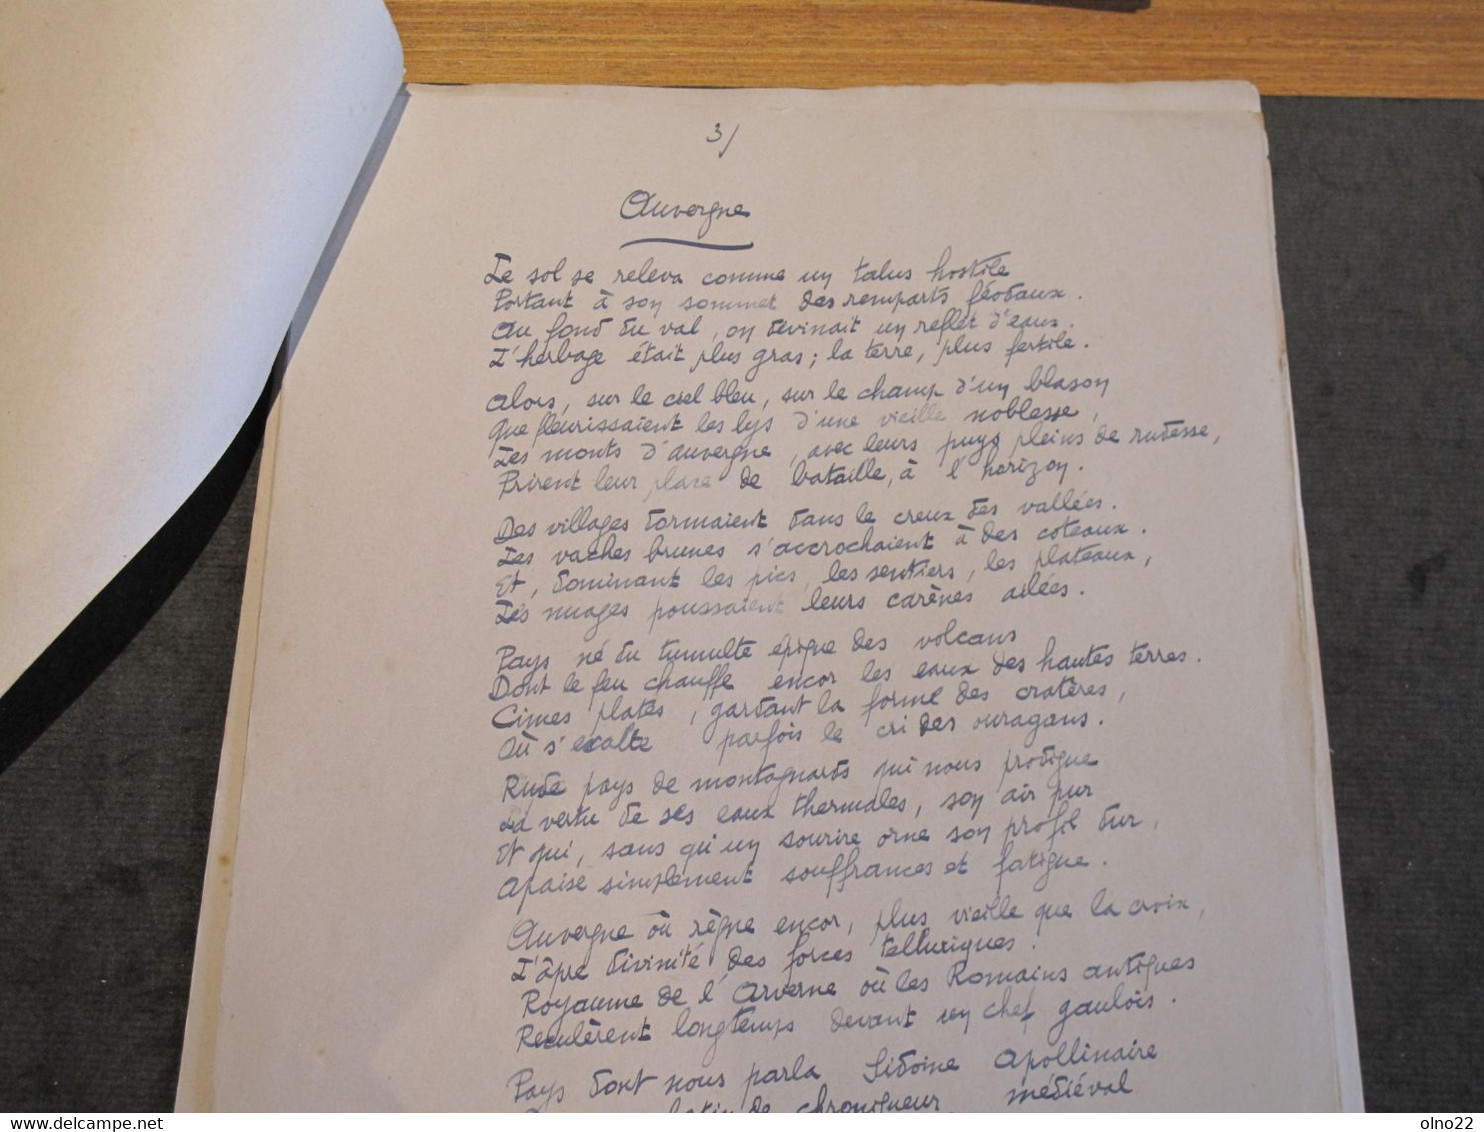 3/
Auvergne
Le sol se releva comme un talus hostile
Portant à son sommet des remparts féodaux.
Au fond du val, on devinait un reflet d'eaux.
L'herbage était plus gras ; la terre, plus fertile.
Alors, sur le ciel bleu, sur le champ d'un blason
Que fleurissaient les lys d'une vieille noblesse,
Les monts d'Auvergne, avec leurs puys pleins de rudesse,
Prirent leur place de bataille, à l'horizon.
Des villages dormaient dans le creux des vallées.
Les vaches brunes s'accrochaient à des coteaux.
Et, dominant les pics, les sentiers, les plateaux,
Les nuages poussaient leurs carènes ailées.
Pays né du tumulte épique des volcans
Dont le feu chauffe encor les eaux des hautes terres.
Cimes plates, gardant la forme des cratères,
Où s'exalte parfois le cri des ouragans.
Rude pays de montagnards qui nous prodigue
La vertu de ses eaux thermales, son air pur
Et qui, sans qu'un sourire orne son profil dur,
Apaise simplement souffrances et fatigue.
Auvergne où règne encor, plus vieille que la croix,
L'âpre divinité des forces telluriques.
Royaume de l'Arverne où les Romains antiques
Reculèrent longtemps devant un chef gaulois.
Pays dont nous parla Sidoine Apollinaire
latin de chroniqueur médiéval
www.delcampe.net
olno22